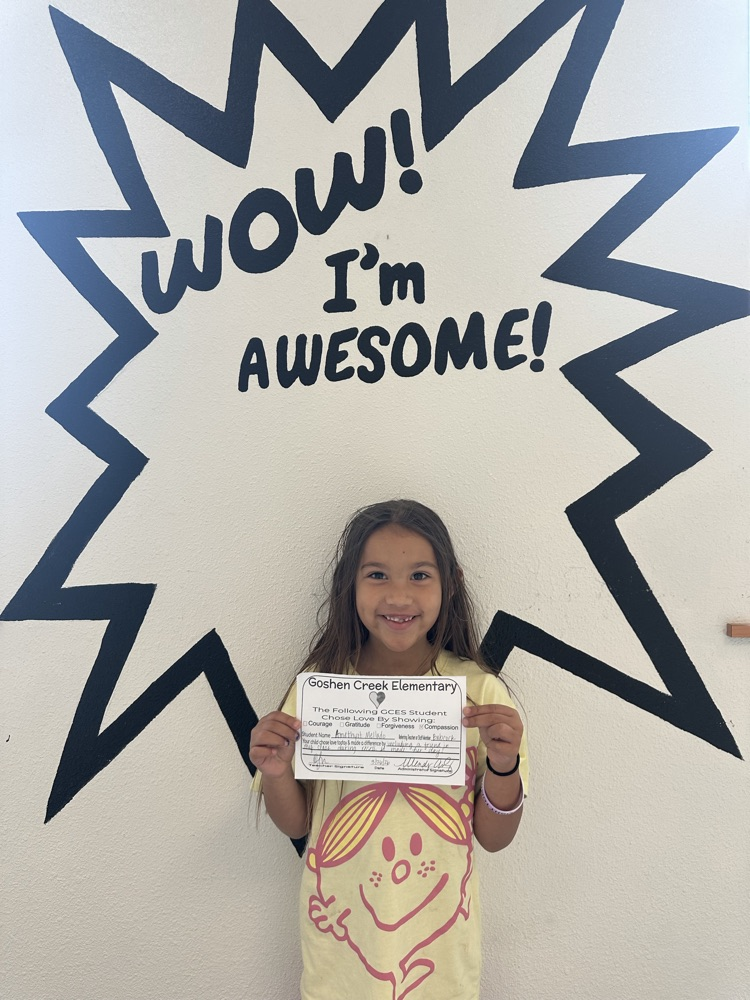 WOW!
I'm
AWESOME!
Goshen Creek Elementary
The Following GCES Student
Chose Love By Showing:
Courage Gratitude Forgiveness Compassion
Student Name Amethyst
Your child chose love today & made a difference by including a friend in
Teacher Signature Date Administrator Signature